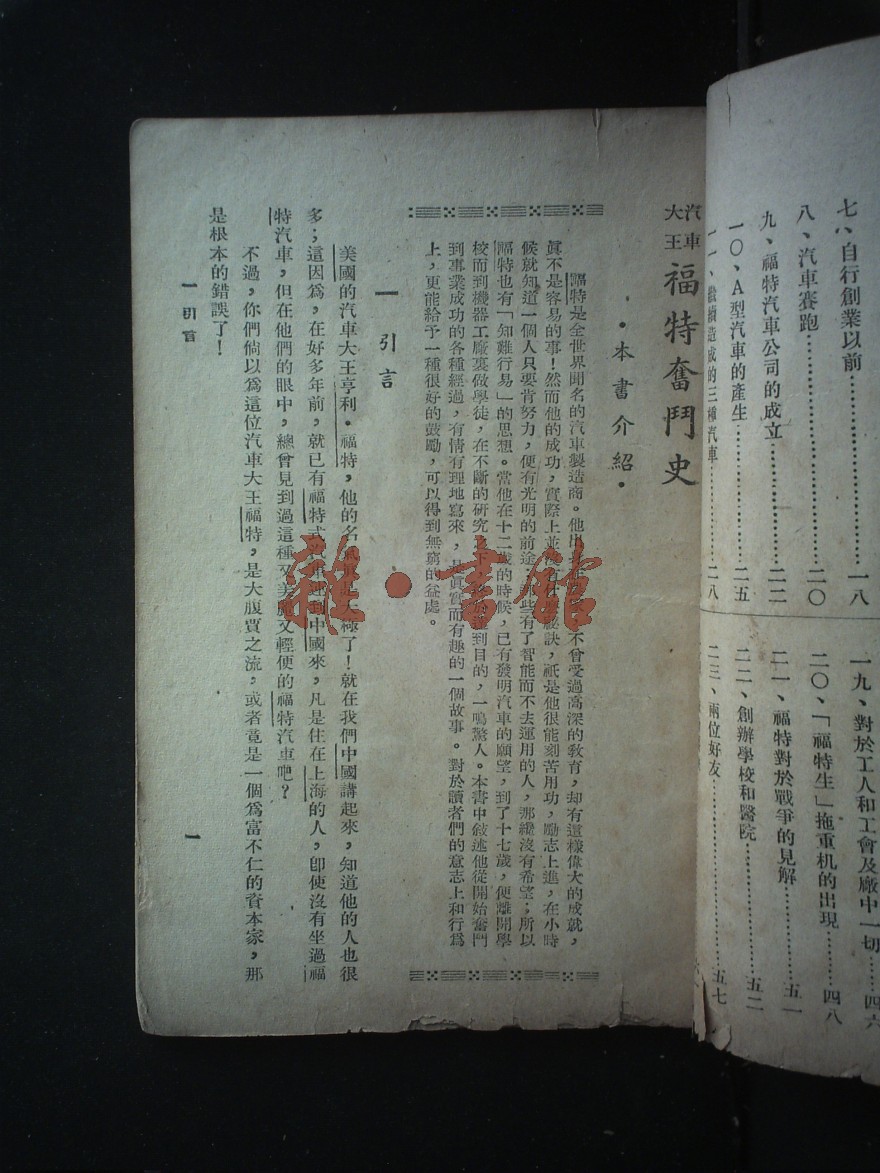 七、自行創業以前……………………一八
八、汽車賽跑……………………二〇
九、福特汽車公司的成立……………………二二
一〇、A型汽車的產生……………………二五
一一、繼續造成的三種汽車……………………二八
一九、對於工人和工會及廠中一切……四六
二〇、「福特生」拖重机的出現…………四八
二一、福特對於戰爭的見解…………五一
二二、創辦學校和醫院…………五二
二三、兩位好友…………五七
汽車大王福特奮鬥史
•本書介紹•
福特是全世界聞名的汽車製造商。他出不曾受過高深的敎育，却有這樣偉大的成就，
眞不是容易的事！然而他的成功，實際上並沒有秘訣，祇是他很能刻苦用功，勵志上進，在小時
候就知道一個人只要肯努力，便有光明的前途。那些有了智能而不去運用的人，那纔沒有希望；所以
福特也有「知難行易」的思想。當他在十二歲的時候，已有發明汽車的願望，到了十七歲，便離開學
校而到機器工廠裏做學徒，在不斷的研究之下，達到目的，一鳴驚人。本書中敍述他從開始奮鬥
到事業成功的各種經過，有情有理地寫來，是眞實而有趣的一個故事。對於讀者們的意志上和行爲
上，更能給予一種很好的鼓勵，可以得到無窮的益處。
一 引言
美國的汽車大王亨利。福特，他的名大極了！就在我們中國講起來，知道他的人也很
多；這因爲，在好多年前，就已有福特式汽車運到中國來，凡是住在上海的人，卽使沒有坐過福
特汽車，但在他們的眼中，總曾見到過這種又美麗又輕便的福特汽車吧？
不過，你們倘以爲這位汽車大王福特，是大腹賈之流，或者竟是一個爲富不仁的資本家，那
是根本的錯誤了！
一 引言
一
雜·書館